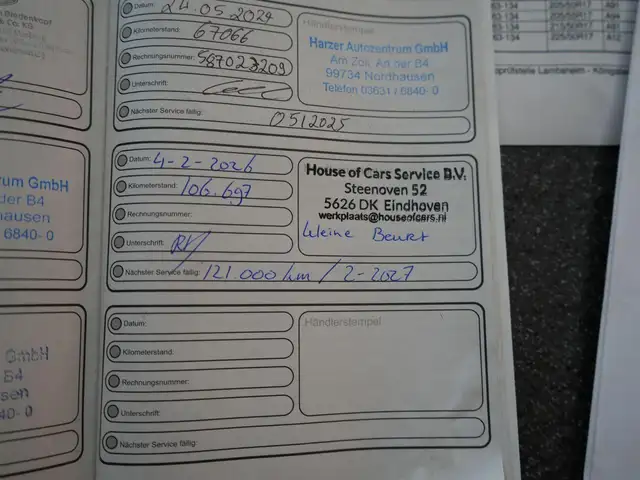 Datum: 24.05.2024
Kilometerstand: 67066
Rechnungsnummer: 587023209
Unterschrift:
Nächster Service fällig: 05/2025
Händlerstempel
Harzer Autozentrum GmbH
Am Zoll, An der B4
99734 Nordhausen
Telefon 03631 / 6840- 0
Datum: 4-2-2026
Kilometerstand: 106.697
Rechnungsnummer:
Unterschrift:
Nächster Service fällig: 121.000 km / 2-2027
House of Cars Service B.V.
Steenoven 52
5626 DK Eindhoven
werkplaats@houseofcars.nl
kleine Beurt
Datum:
Kilometerstand:
Rechnungsnummer:
Unterschrift:
Nächster Service fällig:
Händlerstempel
um GmbH
der B4
hausen
6840- 0
GmbH
B4
sen
40- 0
63-134 205/50R17